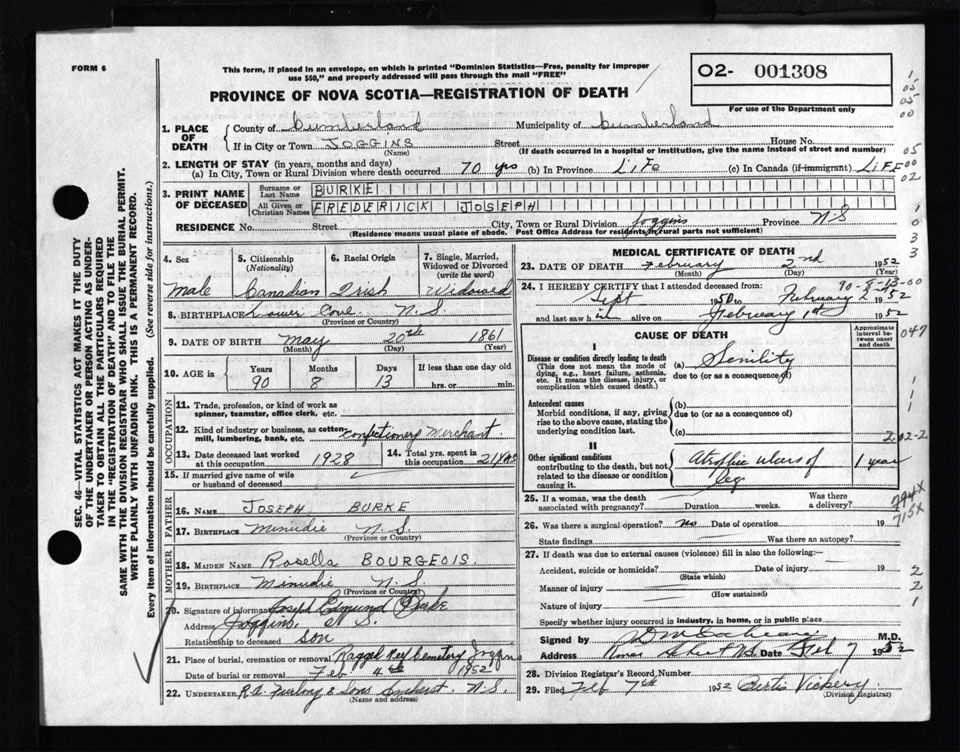 FORM 6
This form, if placed in an envelope, on which is printed "Dominion Statistics—Free, penalty for improper
use $50," and properly addressed will pass through the mail "FREE"
PROVINCE OF NOVA SCOTIA—REGISTRATION OF DEATH
02- 001308
For use of the Department only
1. PLACE OF DEATH
County of Cumberland Municipality of Cumberland
If in City or Town JOGGINS Street House No.
(Name) (If death occurred in a hospital or institution, give the name instead of street and number)
2. LENGTH OF STAY (in years, months and days)
(a) In City, Town or Rural Division where death occurred 70 yrs (b) In Province Life (c) In Canada (if immigrant) LIFE
3. PRINT NAME OF DECEASED
Surname or Last Name BURKE
All Given or Christian Names FREDERICK JOSEPH
RESIDENCE No. Street City, Town or Rural Division Joggins Province N.S
(Residence means usual place of abode. Post Office Address for residents in rural parts not sufficient)
4. Sex
Male
5. Citizenship
(Nationality)
Canadian
6. Racial Origin
Irish
7. Single, Married, Widowed or Divorced
(write the word)
Widowed
8. BIRTHPLACE Lower Cove N.S.
(Province or Country)
9. DATE OF BIRTH May 20th 1861
(Month) (Day) (Year)
10. AGE in
Years Months Days If less than one day old
90 8 13 hrs. or min.
OCCUPATION
11. Trade, profession, or kind of work as
spinner, teamster, office clerk, etc.
12. Kind of industry or business, as cotton-
mill, lumbering, bank, etc. Confectionery Merchant.
13. Date deceased last worked
at this occupation 1928
14. Total yrs. spent in
this occupation 21 yrs
15. If married give name of wife
or husband of deceased
FATHER
16. NAME JOSEPH BURKE
17. BIRTHPLACE Minudie N.S.
(Province or Country)
MOTHER
18. MAIDEN NAME Rosella BOURGEOIS.
19. BIRTHPLACE Minudie N.S.
(Province or Country)
20. Signature of informant Joseph Edmund Burke
Address Joggins, N.S.
Relationship to deceased Son
21. Place of burial, cremation or removal Cemetery Joggins
Date of burial or removal Feb 4th 1952
22. UNDERTAKER R.A. Furlong & Sons Amherst. N.S.
(Name and address)
MEDICAL CERTIFICATE OF DEATH
23. DATE OF DEATH February 2nd 1952
(Month) (Day) (Year)
24. I HEREBY CERTIFY that I attended deceased from:
Sept 1950 to February 2 1952
and last saw h im alive on February 1st 1952
CAUSE OF DEATH
Approximate interval between onset and death
I
Disease or condition directly leading to death
(This does not mean the mode of
dying, e.g., heart failure, asthenia,
etc. It means the disease, injury, or
complication which caused death.)
(a) Senility
due to (or as a consequence of)
Antecedent causes
Morbid conditions, if any, giving
rise to the above cause, stating the
underlying condition last.
(b)
due to (or as a consequence of)
(c)
II
Other significant conditions
contributing to the death, but not
related to the disease or condition
causing it.
ulcers of
leg
1 year
25. If a woman, was the death
associated with pregnancy? Duration weeks. Was there
a delivery?
26. Was there a surgical operation? No Date of operation 19
State findings Was there an autopsy?
27. If death was due to external causes (violence) fill in also the following:—
Accident, suicide or homicide? Date of injury 19
(State which)
Manner of injury
(How sustained)
Nature of injury
Specify whether injury occurred in industry, in home, or in public place
Signed by M.D.
Address N.S. Date Feb 7 1952
28. Division Registrar's Record Number
29. Filed Feb 7th 1952 Curtis Vickery
(Division Registrar)
SEC. 46—VITAL STATISTICS ACT MAKES IT THE DUTY
OF THE UNDERTAKER OR PERSON ACTING AS UNDER-
TAKER TO OBTAIN ALL THE PARTICULARS REQUIRED
IN THE "REGISTRATION OF DEATH" AND TO FILE THE
SAME WITH THE DIVISION REGISTRAR WHO SHALL ISSUE THE BURIAL PERMIT.
WRITE PLAINLY WITH UNFADING INK. THIS IS A PERMANENT RECORD.
Every item of information should be carefully supplied. (See reverse side for instructions.)
1
05
05
00
05
00
02
1
0
3
3
90-8-13-00
047
1
1
1
202-2
794X
715X
2
2
1